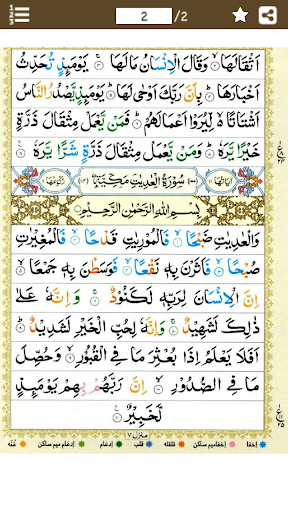 2 /2
اَثْقَالَهَا ۙ وَقَالَ الْاِنْسَانُ مَا لَهَا ۚ يَوْمَئِذٍ تُحَدِّثُ
اَخْبَارَهَا ۙ بِاَنَّ رَبَّكَ اَوْحٰى لَهَا ؕ يَوْمَئِذٍ يَّصْدُرُ النَّاسُ
اَشْتَاتًا ۙ لِّيُرَوْا اَعْمَالَهُمْ ؕ فَمَنْ يَّعْمَلْ مِثْقَالَ ذَرَّةٍ
خَيْرًا يَّرَهٗ ؕ وَمَنْ يَّعْمَلْ مِثْقَالَ ذَرَّةٍ شَرًّا يَّرَهٗ
اٰيَاتُهَا ١١ سُوْرَةُ الْعٰدِيٰتِ مَكِّيَّةٌ رُكُوْعُهَا ١
بِسْمِ اللّٰهِ الرَّحْمٰنِ الرَّحِيْمِ
وَالْعٰدِيٰتِ ضَبْحًا ۙ فَالْمُوْرِيٰتِ قَدْحًا ۙ فَالْمُغِيْرٰتِ
صُبْحًا ۙ فَاَثَرْنَ بِهٖ نَقْعًا ۙ فَوَسَطْنَ بِهٖ جَمْعًا ۙ
اِنَّ الْاِنْسَانَ لِرَبِّهٖ لَكَنُوْدٌ ۚ وَاِنَّهٗ عَلٰى
ذٰلِكَ لَشَهِيْدٌ ۚ وَاِنَّهٗ لِحُبِّ الْخَيْرِ لَشَدِيْدٌ ؕ
اَفَلَا يَعْلَمُ اِذَا بُعْثِرَ مَا فِى الْقُبُوْرِ ۙ وَحُصِّلَ
مَا فِى الصُّدُوْرِ ۙ اِنَّ رَبَّهُمْ بِهِمْ يَوْمَئِذٍ
لَّخَبِيْرٌ
منزل ٧
اِخفا اِخفامیم ساكن قلقله قلب اِدغام اِدغام میم ساكن غُنّه